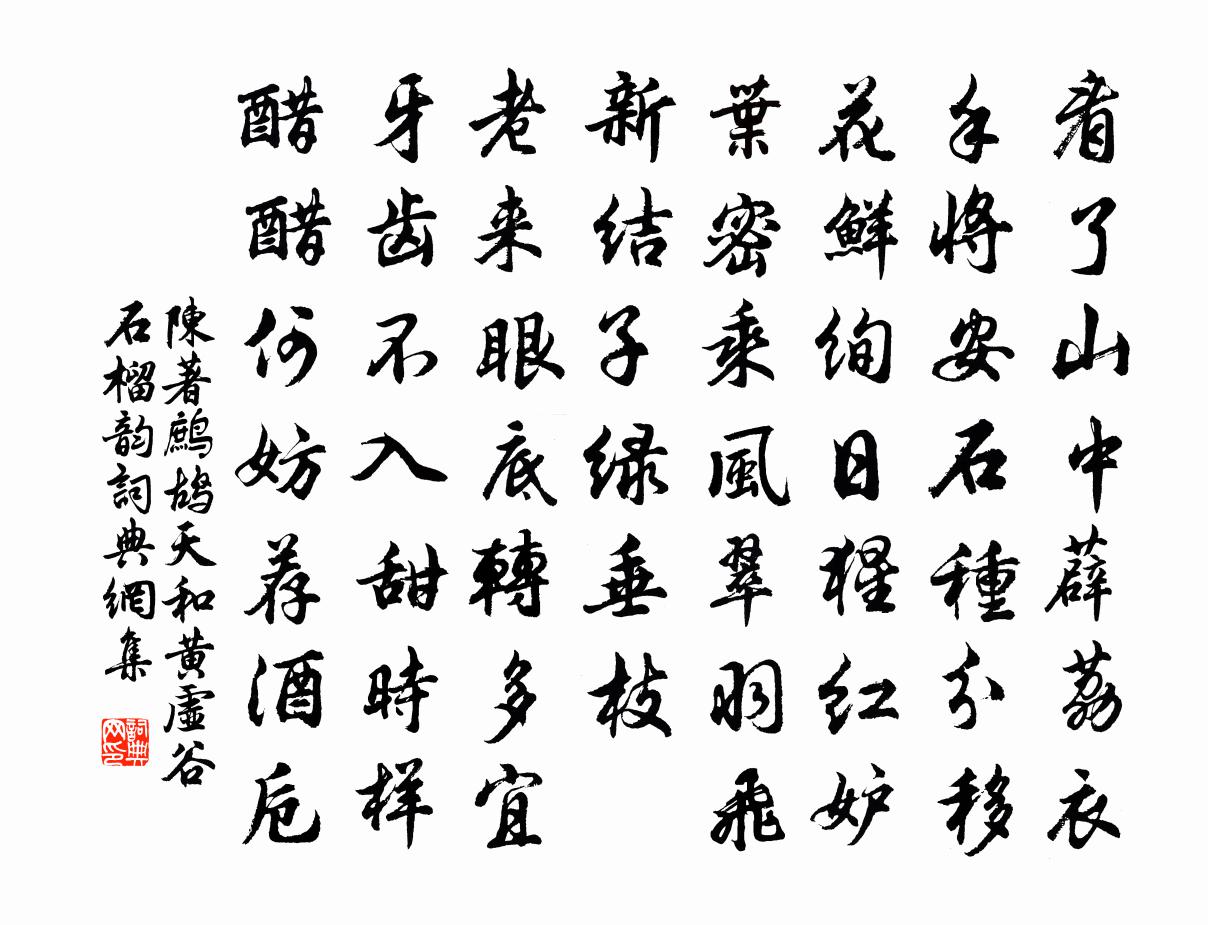 看了山中薜荔衣
手将安石種分移
花鮮絢日猩红妒
葉密乘風翠羽飛
新结子绿垂枝
老来眼底轉多宜
牙齿不入甜時样
醋醋何妨荐酒卮
陳著鷓鴣天和黄虛谷
石榴韵詞典網集
詞典网印